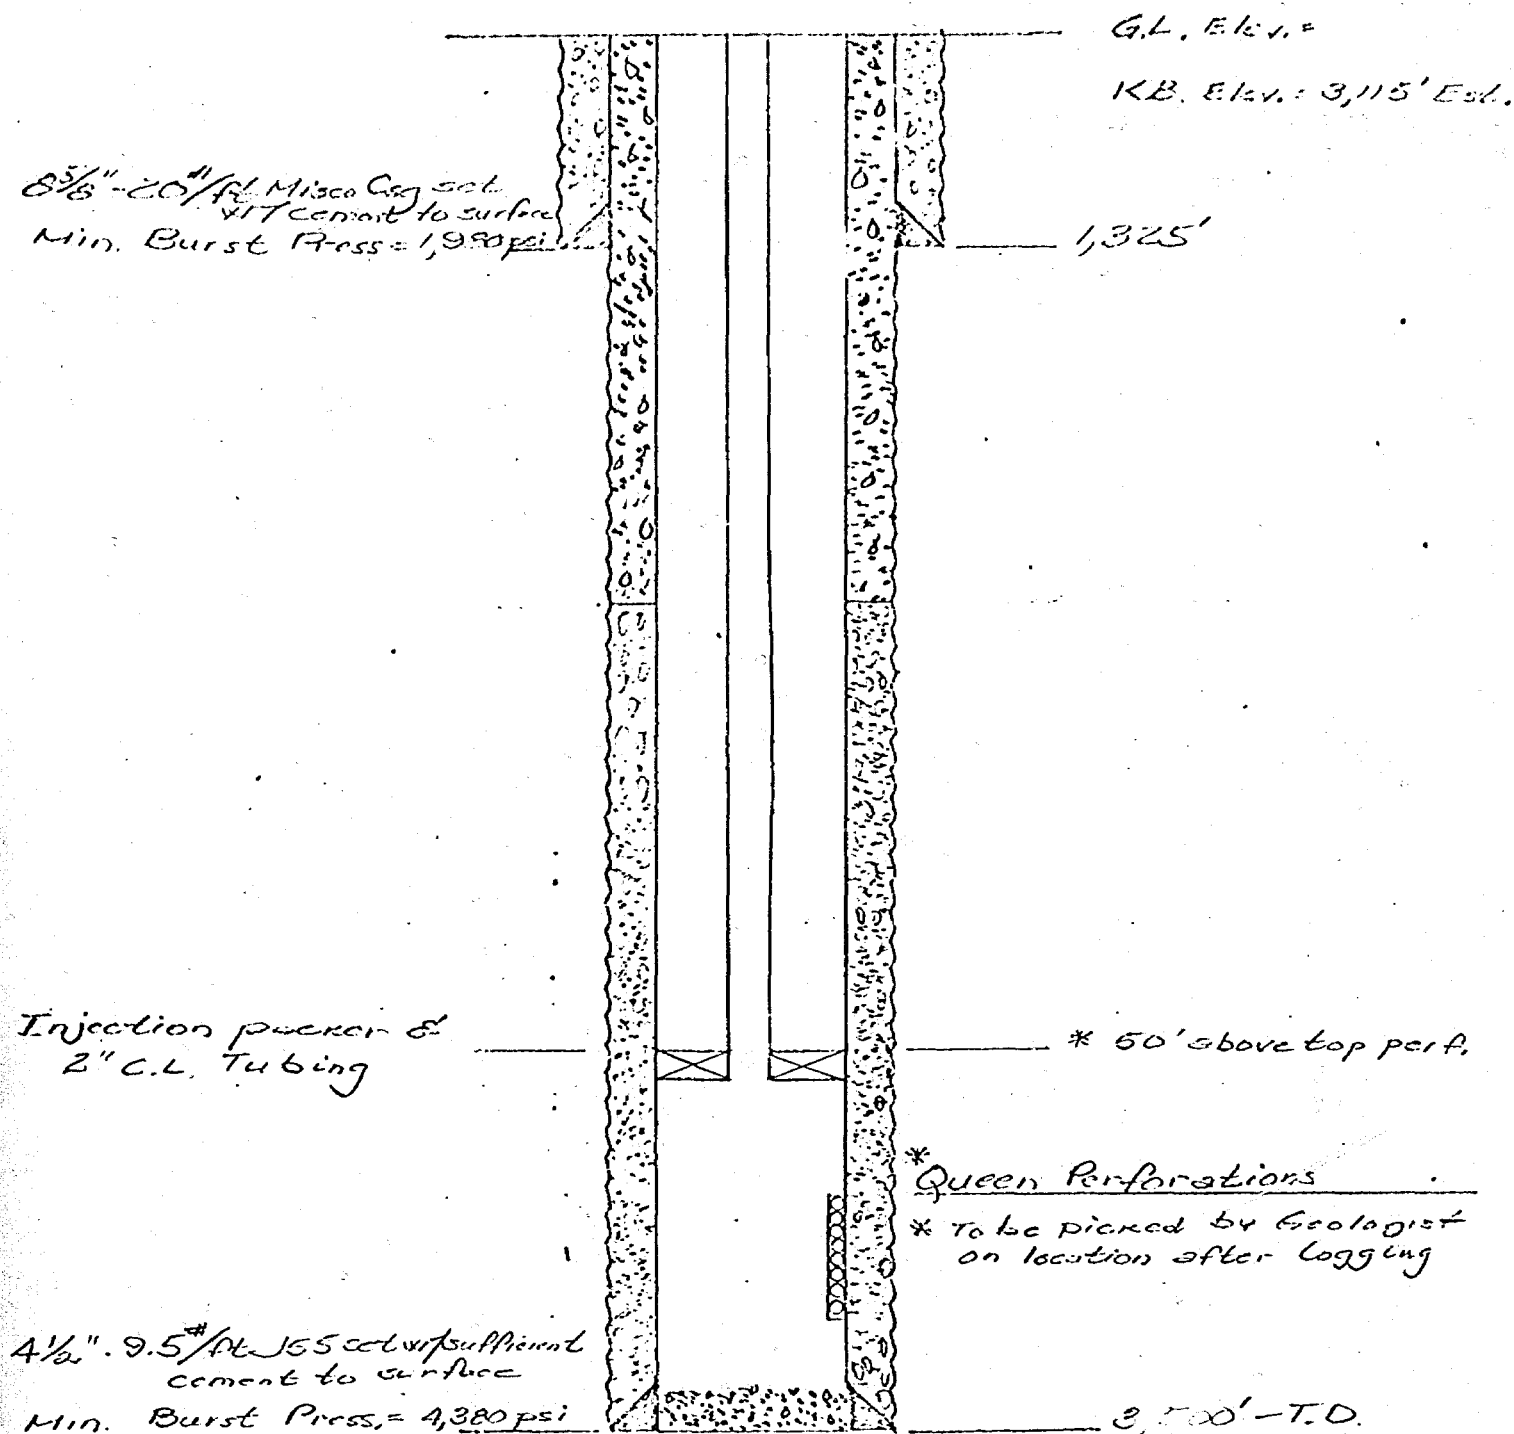 G.L. Elev. =
KB. Elev. = 3,115' Est.
8⅝" - 20#/ft Misco Csg set
w/ cement to surface
Min. Burst Press = psi
1,325'
Injection packer &
2" C.L. Tubing
* 50' above top perf.
* Queen Perforations
* To be picked by Geologist
on location after logging
4½" - 9.5#/ft J55 set w/sufficient
cement to surface
Min. Burst Press. = 4,380 psi
T.D.